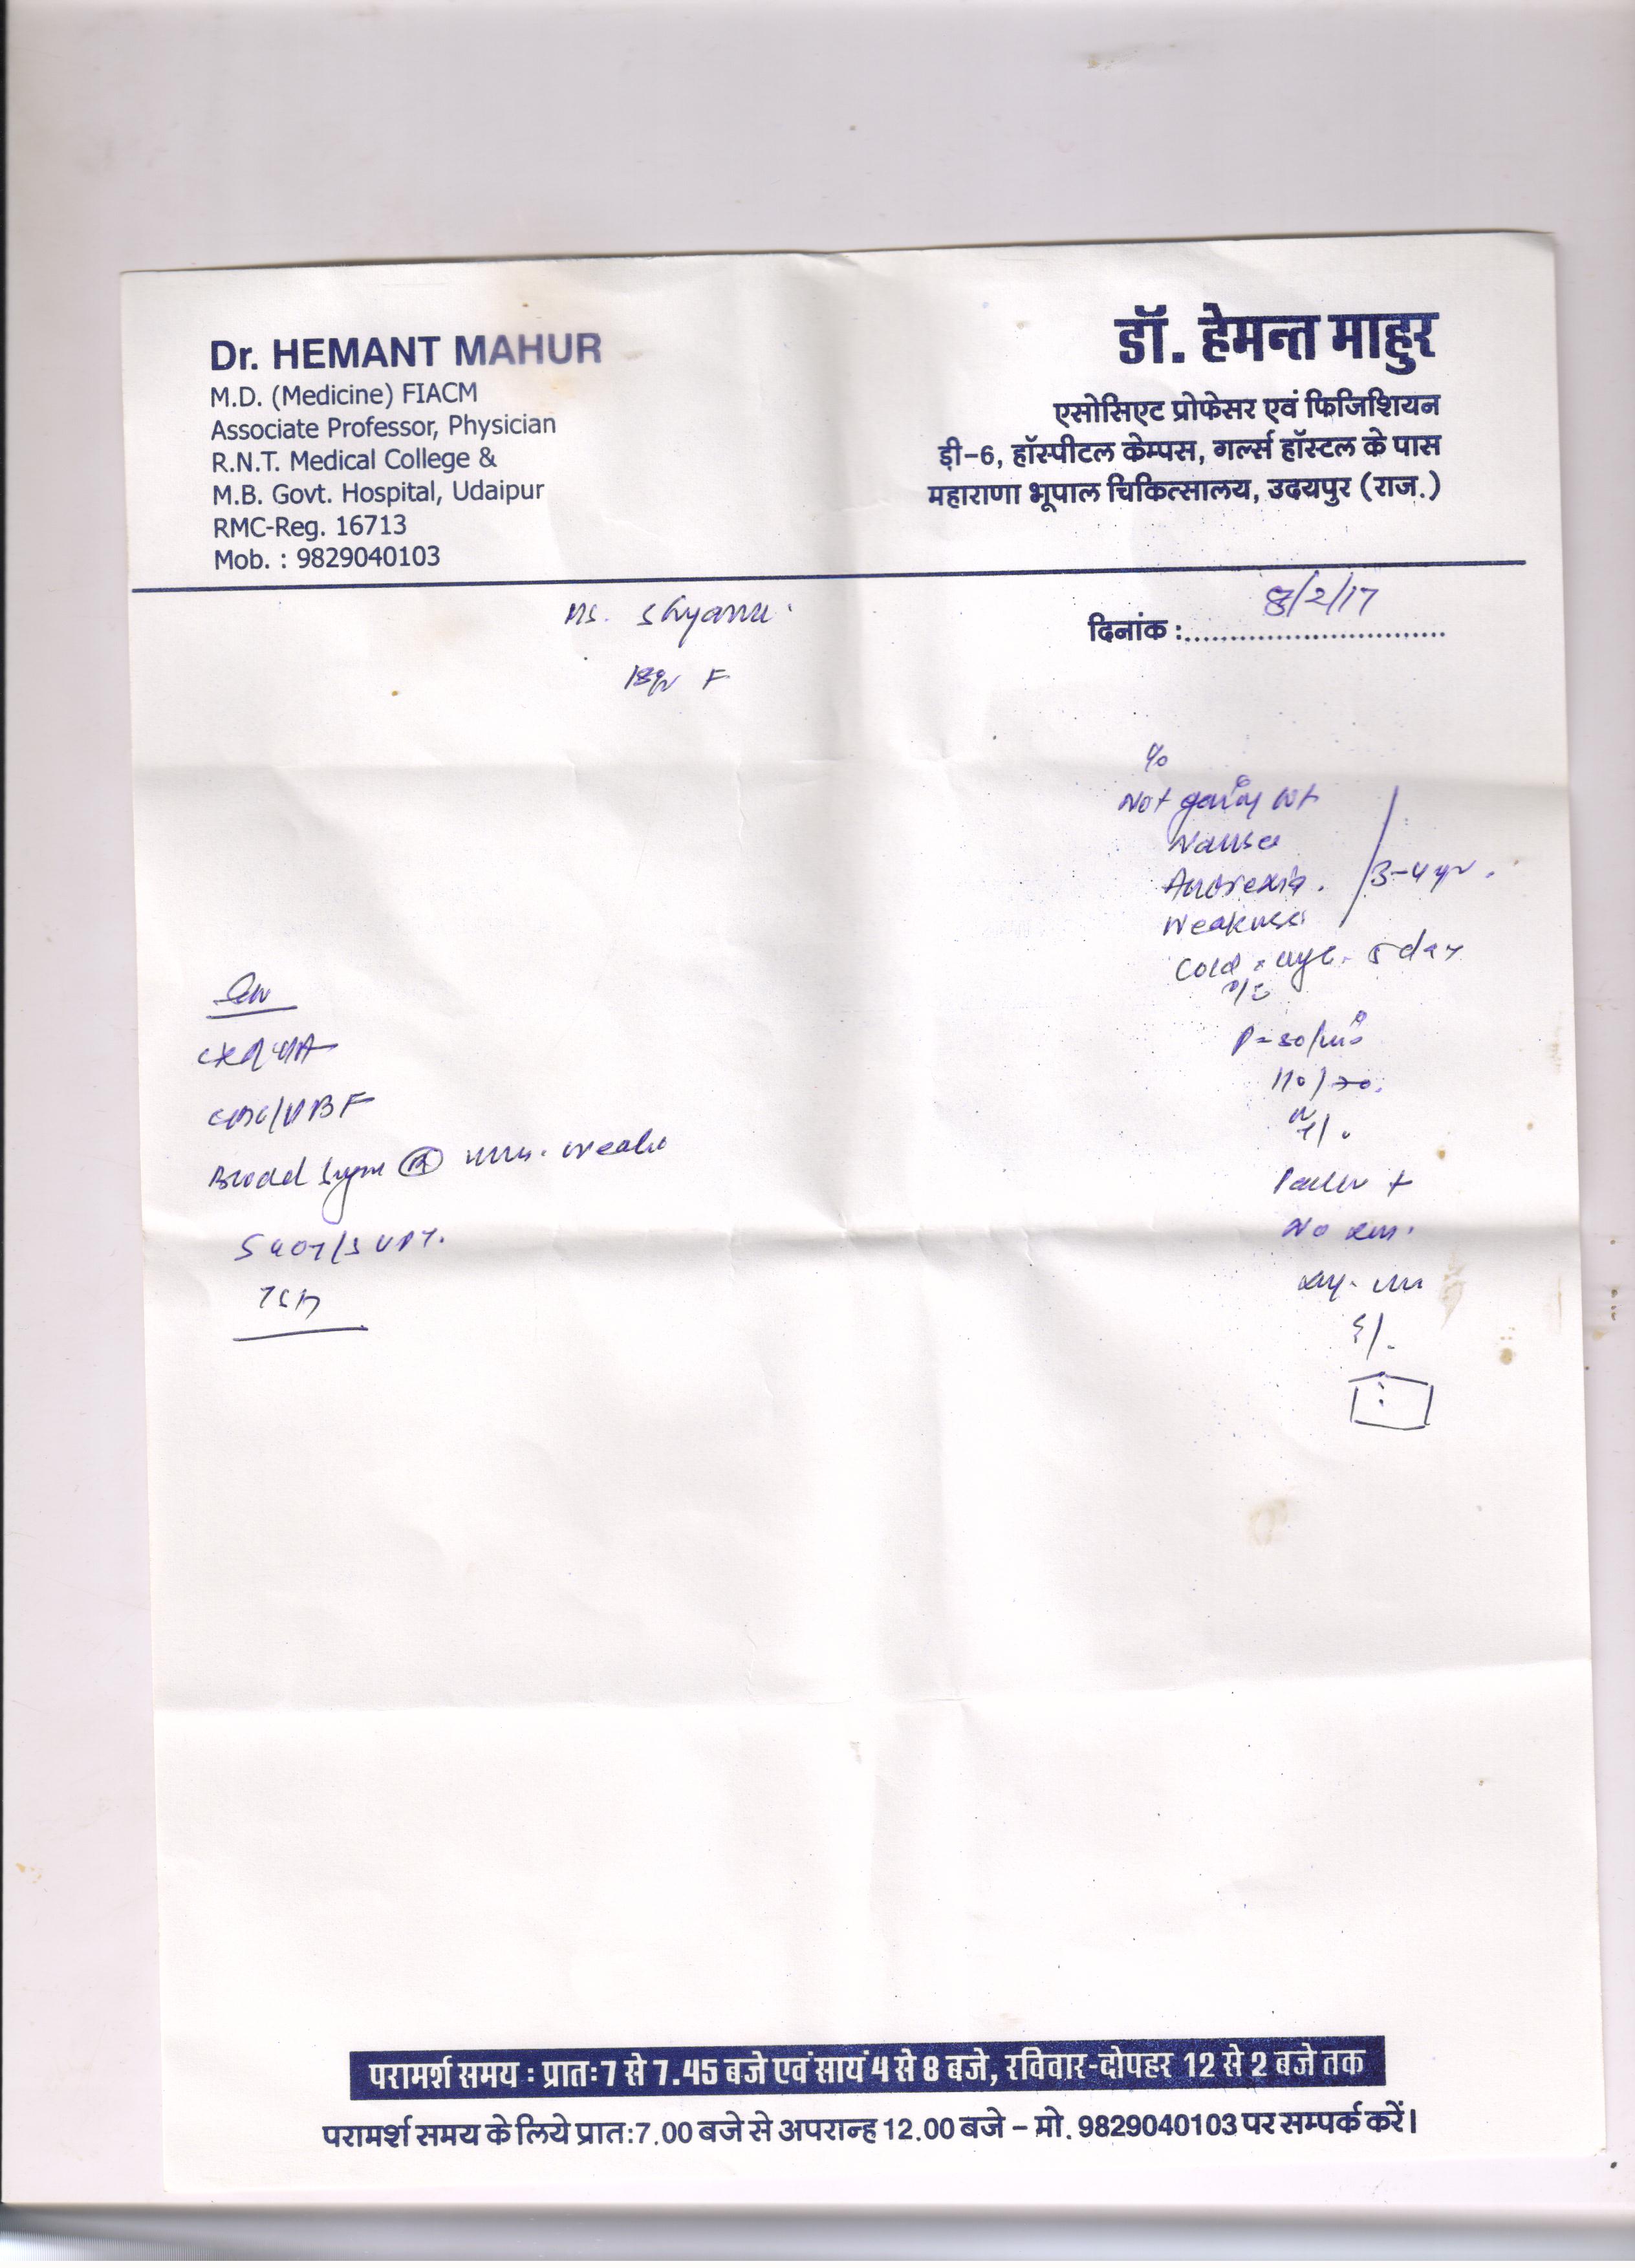 Dr. HEMANT MAHUR
M.D. (Medicine) FIACM
Associate Professor, Physician
R.N.T. Medical College &
M.B. Govt. Hospital, Udaipur
RMC-Reg. 16713
Mob. : 9829040103
डॉ. हेमन्त माहुर
एसोसिएट प्रोफेसर एवं फिजिशियन
ड़ी-6, हॉस्पीटल केम्पस, गर्ल्स हॉस्टल के पास
महाराणा भूपाल चिकित्सालय, उदयपुर (राज.)
दिनांक :.............................. 8/2/17
Ms.
F
Not gaining wt
Nausea
Anorexia.
3-4 yr.
Weakness
Cold 5 day
P=80/min
110/70.
Pallor +
No
CBC/PBF
Blood Sugar
SGOT/SGPT.
TSH
परामर्श समय : प्रातः 7 से 7.45 बजे एवं सायं 4 से 8 बजे, रविवार-दोपहर 12 से 2 बजे तक
परामर्श समय के लिये प्रातः 7.00 बजे से अपरान्ह 12.00 बजे – मो. 9829040103 पर सम्पर्क करें।